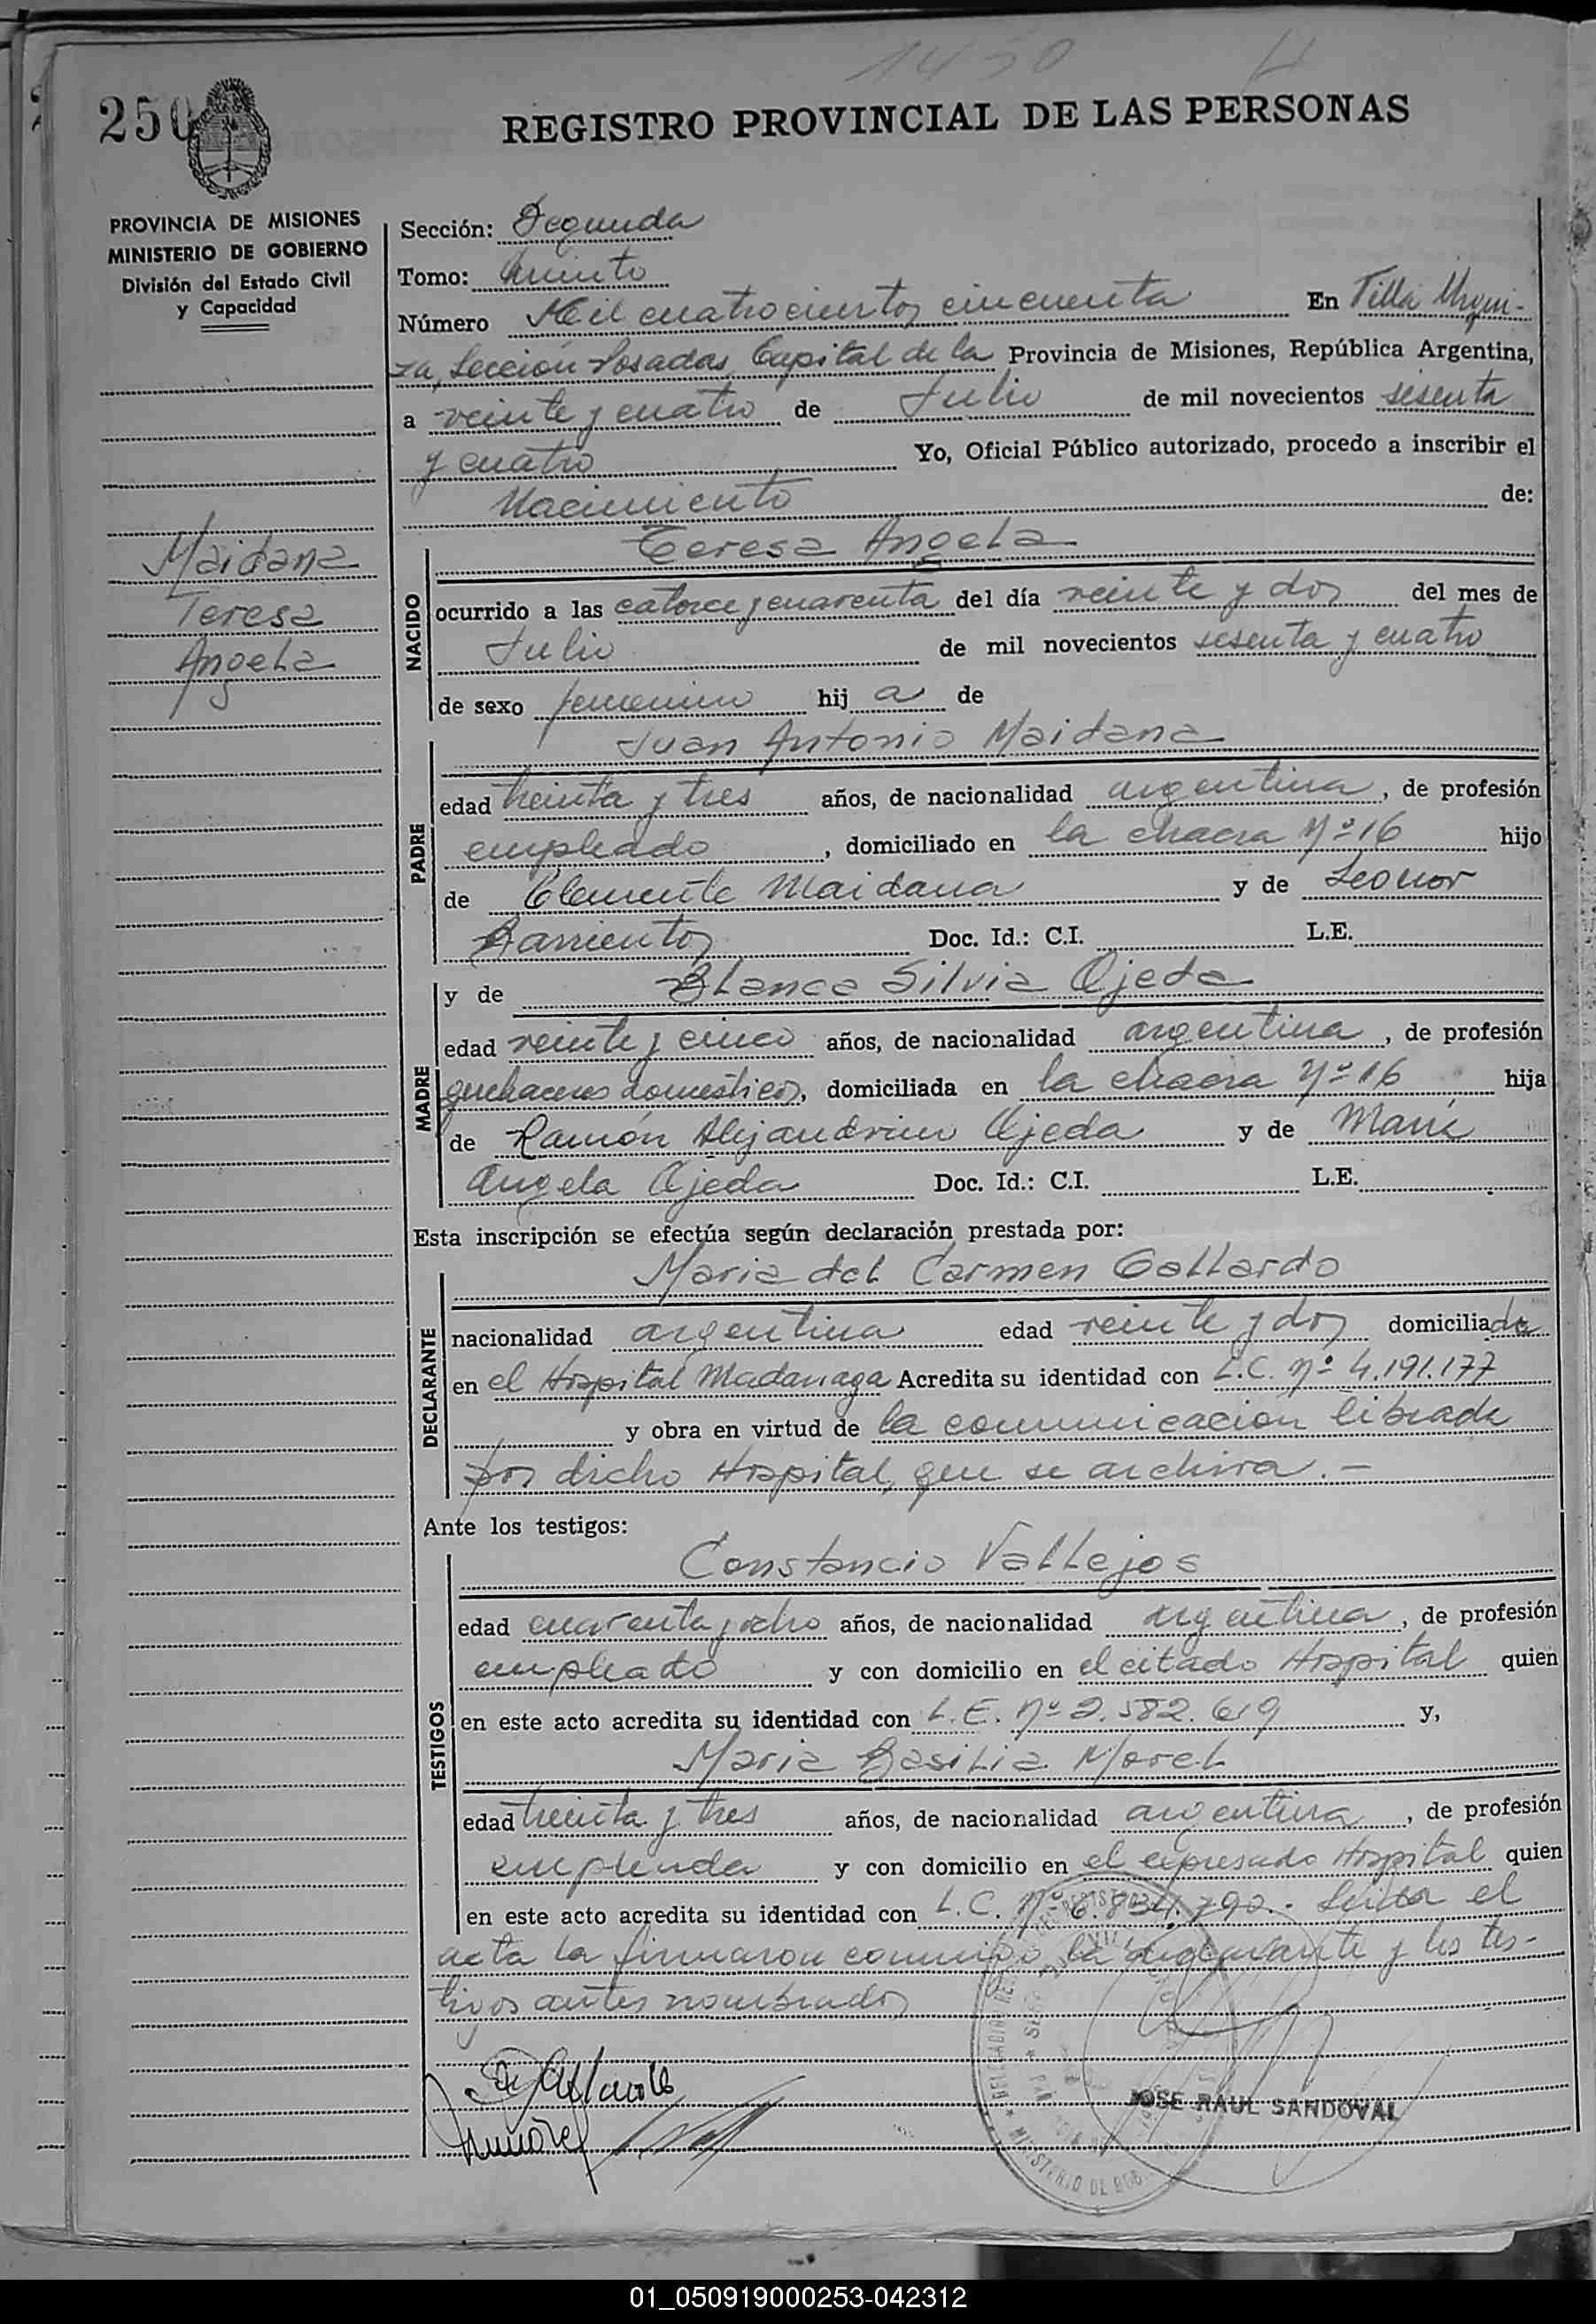 1450
250
REGISTRO PROVINCIAL DE LAS PERSONAS
PROVINCIA DE MISIONES
MINISTERIO DE GOBIERNO
División del Estado Civil
y Capacidad
Maidana
Teresa
Angela
Sección: Segunda
Tomo: Quinto
Número Mil cuatrocientos cincuenta En Villa Urqui-
za, Sección Posadas, Capital de la Provincia de Misiones, República Argentina,
a veinte y cuatro de Julio de mil novecientos sesenta
y cuatro Yo, Oficial Público autorizado, procedo a inscribir el
Nacimiento de:
NACIDO
Teresa Angela
ocurrido a las catorce y cuarenta del día veinte y dos del mes de
Julio de mil novecientos sesenta y cuatro
de sexo femenino hij a de
PADRE
Juan Antonio Maidana
edad treinta y tres años, de nacionalidad argentina, de profesión
empleado, domiciliado en la chacra Nº 16 hijo
de Clemente Maidana y de Leonor
Barrientos Doc. Id.: C.I. L.E.
MADRE
y de Blanca Silvia Ojeda
edad veinte y cinco años, de nacionalidad argentina, de profesión
quehaceres domésticos, domiciliada en la chacra Nº 16 hija
de Ramón Alejandrino Ojeda y de María
Angela Ojeda Doc. Id.: C.I. L.E.
Esta inscripción se efectúa según declaración prestada por:
DECLARANTE
Maria del Carmen Gallardo
nacionalidad argentina edad veinte y dos domiciliada
en el Hospital Madariaga Acredita su identidad con L.C. Nº 4.191.177
y obra en virtud de la comunicacion librada
por dicho Hospital, que se archiva.-
Ante los testigos:
TESTIGOS
Constancio Vallejos
edad cuarenta y ocho años, de nacionalidad argentina, de profesión
empleado y con domicilio en el citado Hospital quien
en este acto acredita su identidad con L.E. Nº 2.582.619 y,
Maria Basilia Morel
edad treinta y tres años, de nacionalidad argentina, de profesión
empleada y con domicilio en el expresado Hospital quien
en este acto acredita su identidad con L.C. Nº 6.834.790.- Leida el
acta la firmaron conmigo la declarante y los tes-
tigos antes nombrados
JOSE RAUL SANDOVAL
01_050919000253-042312